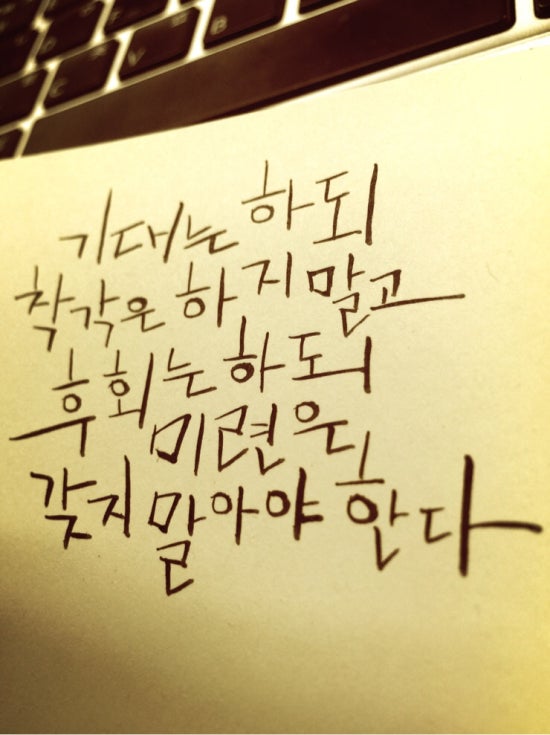 V
B
C
기대는 하되
착각은 하지 말고
후회는 하되
미련은
갖지 말아야 한다